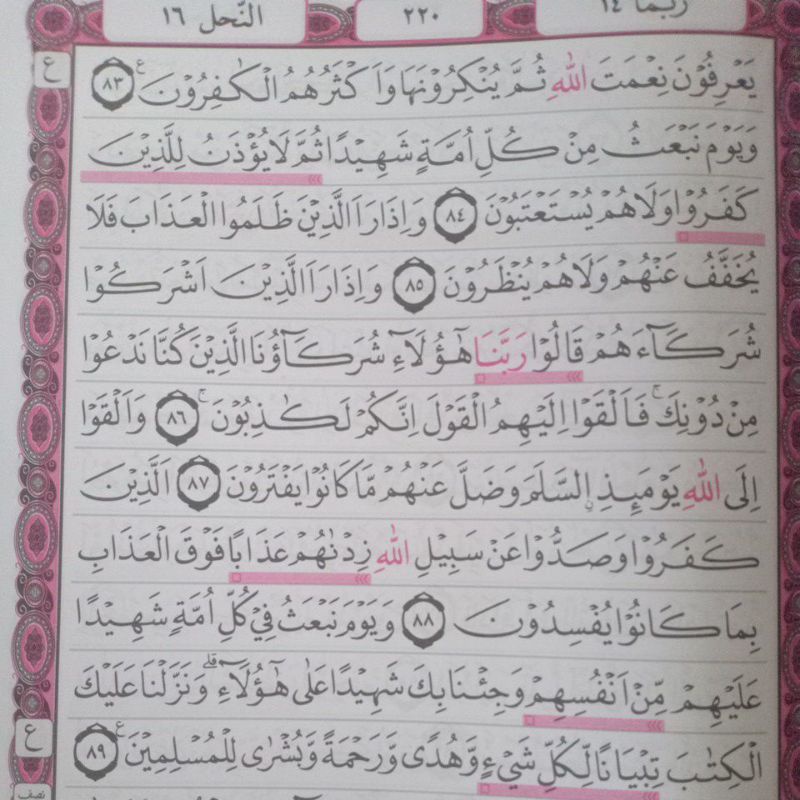 ربما ١٤ ٢٢٠ النّحل ١٦
يَعْرِفُوْنَ نِعْمَتَ اللّٰهِ ثُمَّ يُنْكِرُوْنَهَا وَاَكْثَرُهُمُ الْكٰفِرُوْنَ ࣖ ٨٣
ع
وَيَوْمَ نَبْعَثُ مِنْ كُلِّ اُمَّةٍ شَهِيْدًا ثُمَّ لَا يُؤْذَنُ لِلَّذِيْنَ
كَفَرُوْا وَلَا هُمْ يُسْتَعْتَبُوْنَ ٨٤ وَاِذَا رَاَ الَّذِيْنَ ظَلَمُوا الْعَذَابَ فَلَا
يُخَفَّفُ عَنْهُمْ وَلَا هُمْ يُنْظَرُوْنَ ٨٥ وَاِذَا رَاَ الَّذِيْنَ اَشْرَكُوْا
شُرَكَاۤءَهُمْ قَالُوْا رَبَّنَا هٰٓؤُلَاۤءِ شُرَكَاۤؤُنَا الَّذِيْنَ كُنَّا نَدْعُوْا
مِنْ دُوْنِكَۚ فَاَلْقَوْا اِلَيْهِمُ الْقَوْلَ اِنَّكُمْ لَكٰذِبُوْنَۚ ٨٦ وَاَلْقَوْا
اِلَى اللّٰهِ يَوْمَىِٕذِ ِۨالسَّلَمَ وَضَلَّ عَنْهُمْ مَّا كَانُوْا يَفْتَرُوْنَ ٨٧ اَلَّذِيْنَ
كَفَرُوْا وَصَدُّوْا عَنْ سَبِيْلِ اللّٰهِ زِدْنٰهُمْ عَذَابًا فَوْقَ الْعَذَابِ
بِمَا كَانُوْا يُفْسِدُوْنَ ٨٨ وَيَوْمَ نَبْعَثُ فِيْ كُلِّ اُمَّةٍ شَهِيْدًا
عَلَيْهِمْ مِّنْ اَنْفُسِهِمْ وَجِئْنَا بِكَ شَهِيْدًا عَلٰى هٰٓؤُلَاۤءِۗ وَنَزَّلْنَا عَلَيْكَ
الْكِتٰبَ تِبْيَانًا لِّكُلِّ شَيْءٍ وَّهُدًى وَّرَحْمَةً وَّبُشْرٰى لِلْمُسْلِمِيْنَ ࣖ ٨٩
ع
نصف